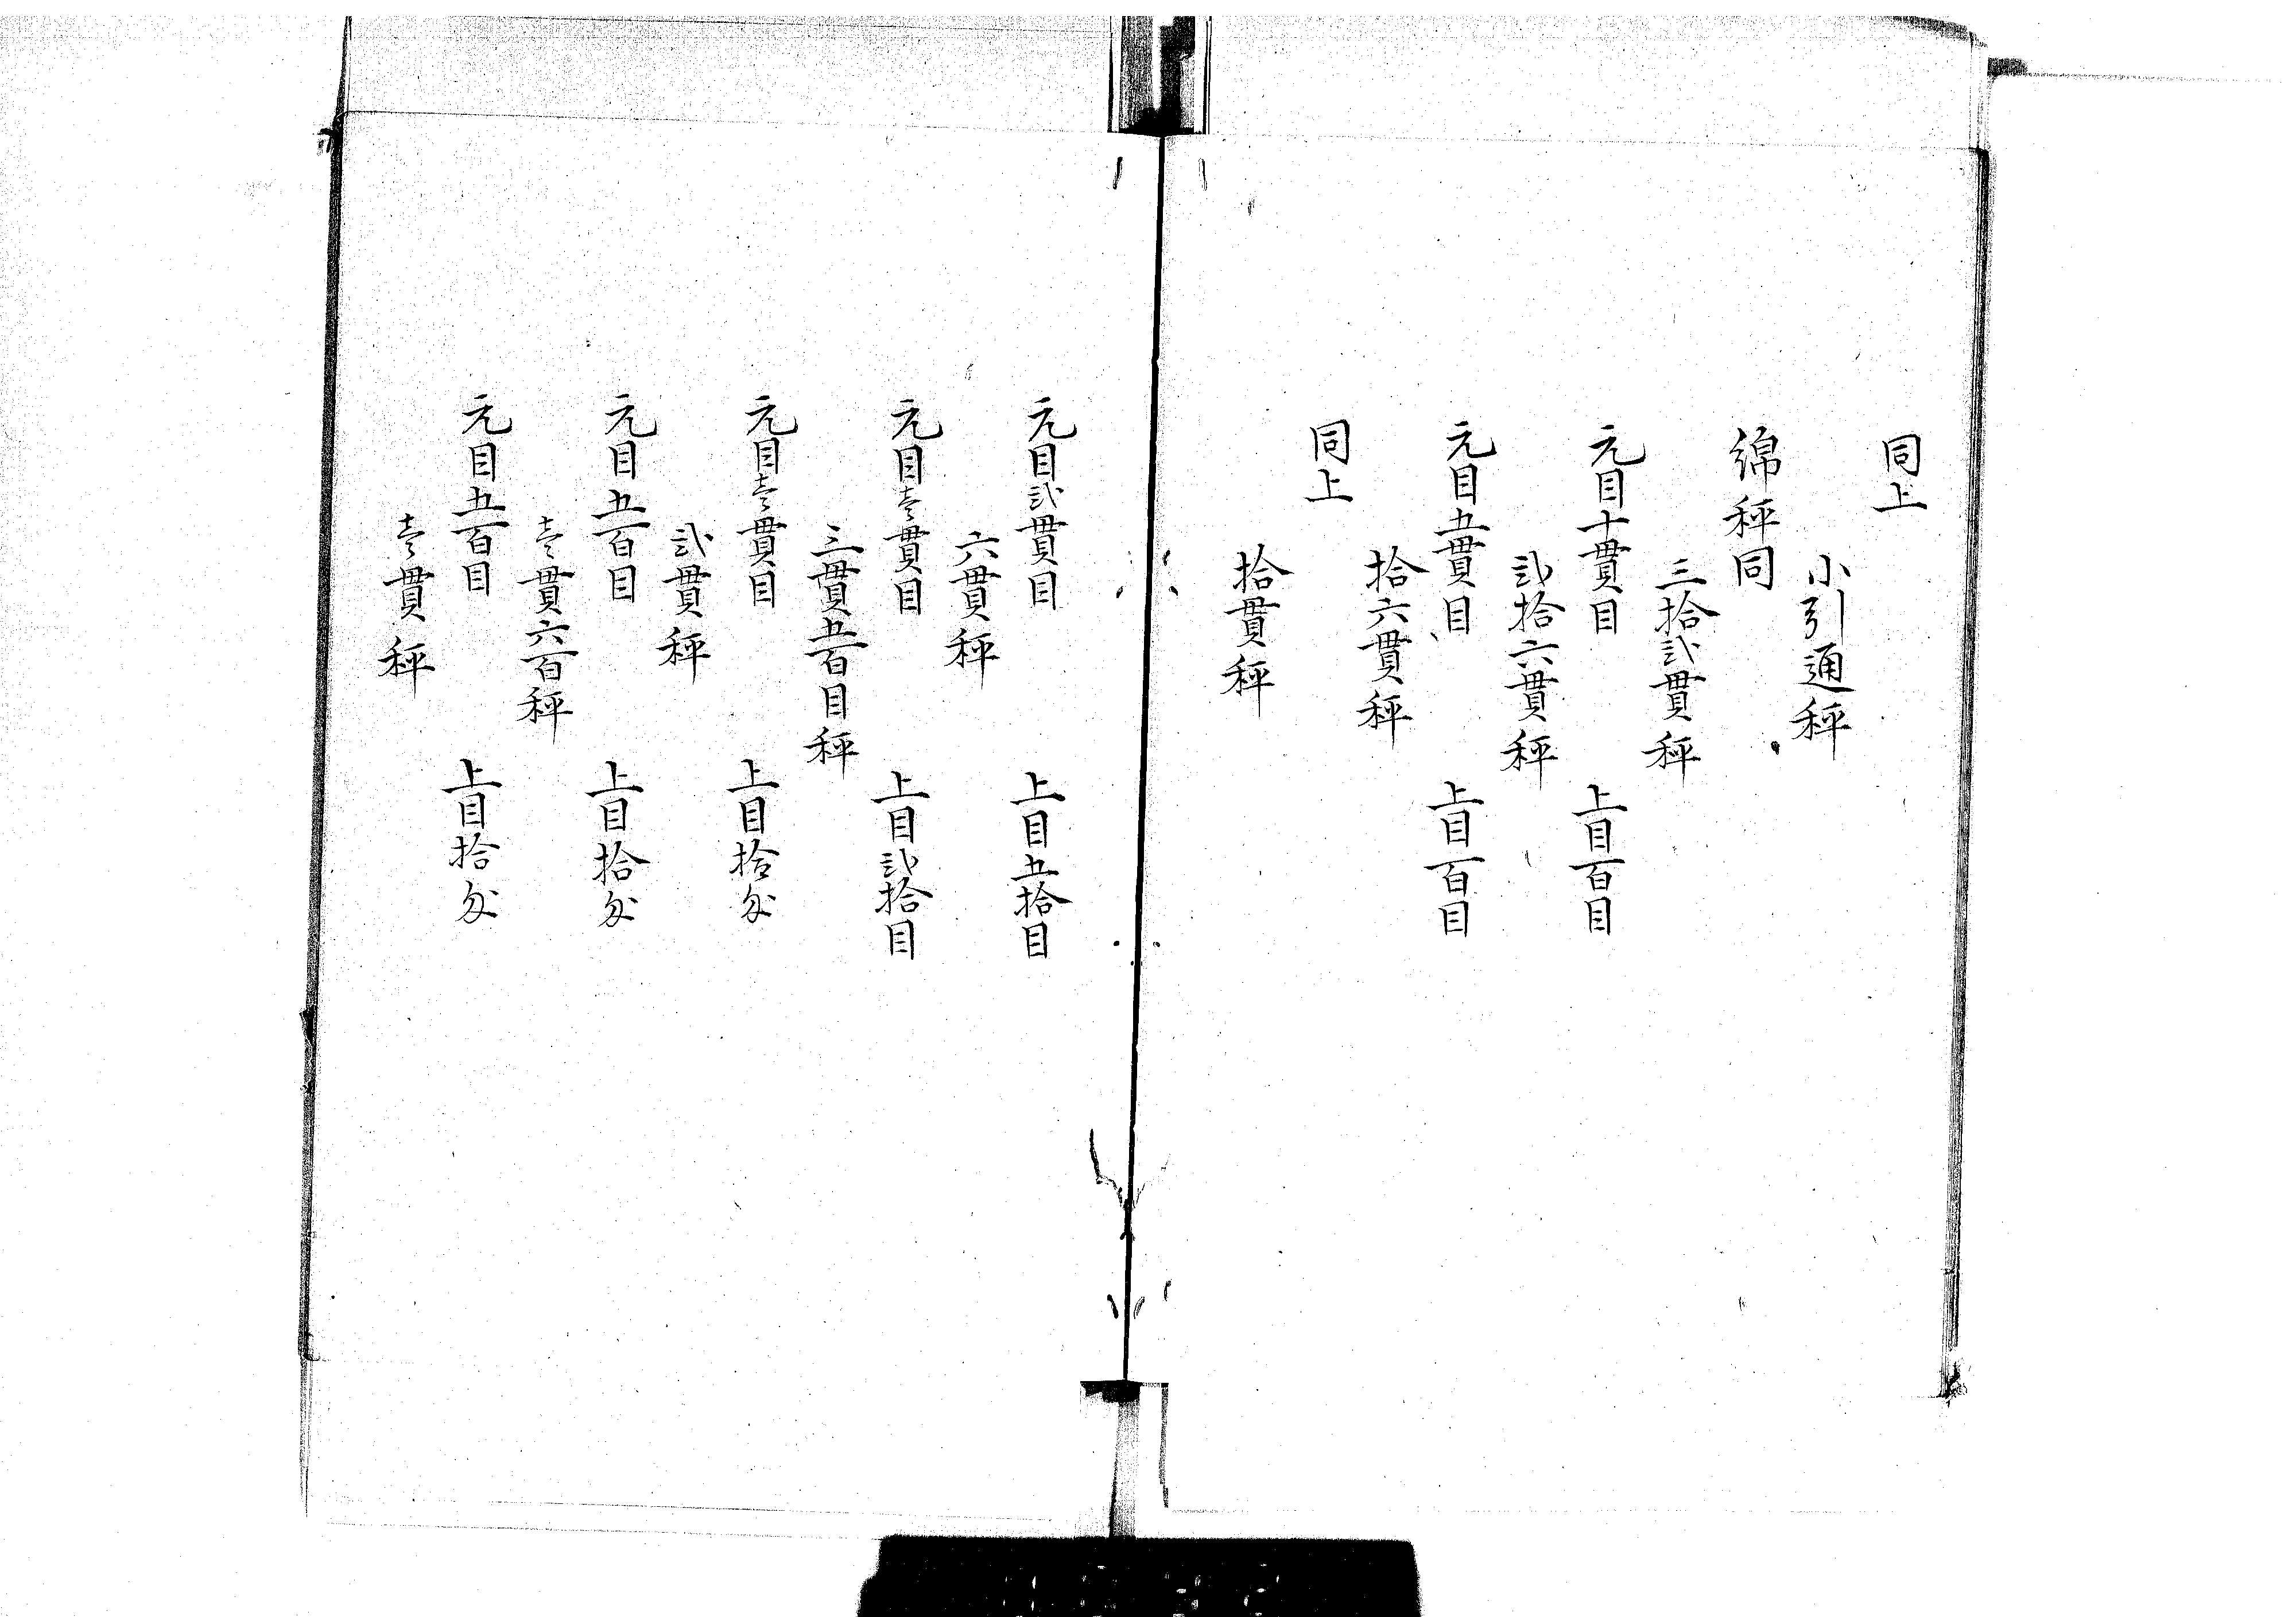 同上
小引通秤
綿秤同
三拾弐貫秤
元目十貫目　上目百目
弐拾六貫秤
元目五貫目　上目百目
拾六貫秤
同上
拾貫秤
元目弐貫目　上目五拾目
六貫秤
元目壱貫目　上目弐拾目
三貫五百目秤
元目壱貫目　上目拾匁
弐貫秤
元目五百目　上目拾匁
壱貫六百秤
元目五百目　上目拾匁
壱貫秤